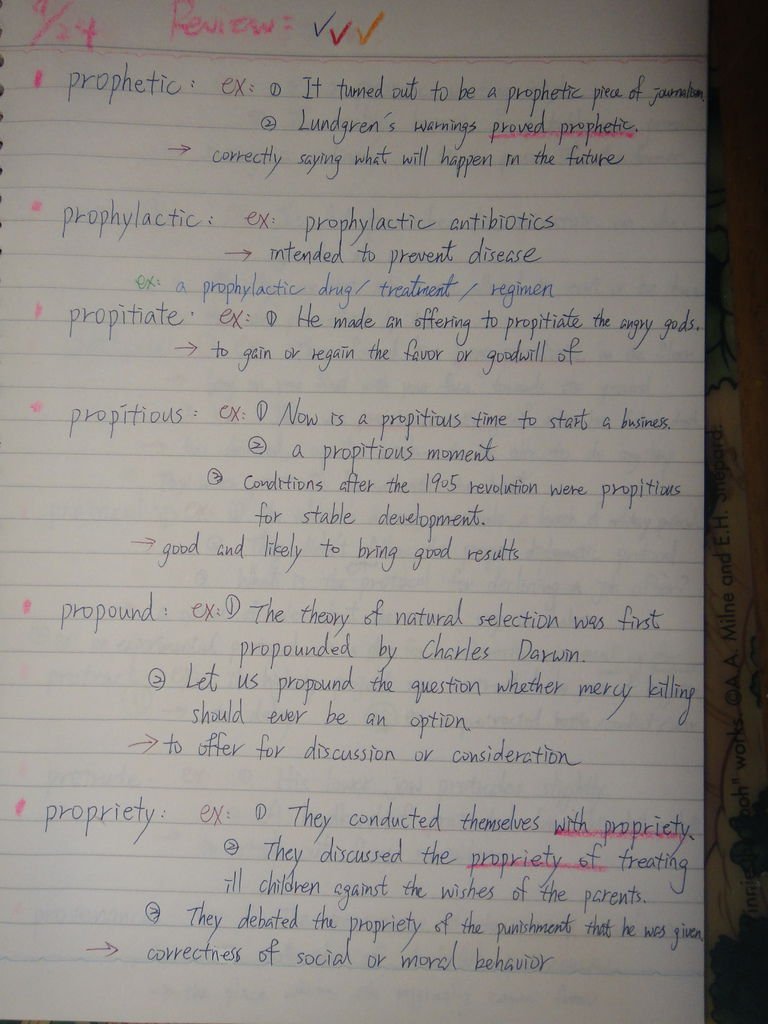 9/24 Review: ✓✓✓
prophetic: ex: ① It turned out to be a prophetic piece of journalism.
② Lundgren's warnings proved prophetic.
→ correctly saying what will happen in the future
prophylactic: ex: prophylactic antibiotics
→ intended to prevent disease
ex: a prophylactic drug/ treatment / regimen
propitiate: ex: ① He made an offering to propitiate the angry gods.
→ to gain or regain the favor or goodwill of
propitious: ex: ① Now is a propitious time to start a business.
② a propitious moment
③ Conditions after the 1905 revolution were propitious
for stable development.
→ good and likely to bring good results
propound: ex: ① The theory of natural selection was first
propounded by Charles Darwin.
② Let us propound the question whether mercy killing
should ever be an option.
→ to offer for discussion or consideration
propriety: ex: ① They conducted themselves with propriety.
② They discussed the propriety of treating
ill children against the wishes of the parents.
③ They debated the propriety of the punishment that he was given.
→ correctness of social or moral behavior
pooh" works ©A.A. Milne and E.H. Shepard.